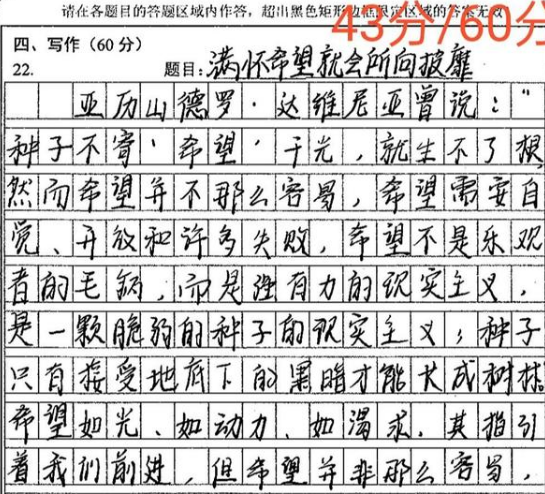 请在各题目的答题区域内作答，超出黑色矩形边框限定区域的答案无效
43分/60分
四、写作（60分）
22. 题目：满怀希望就会所向披靡
亚历山德罗·达维尼亚曾说：“
种子不寄‘希望’于光，就生不了根
然而希望并不那么容易，希望需要自
觉、开放和许多失败，希望不是乐观
者的毛病，而是强有力的现实主义，
是一颗脆弱的种子的现实主义；种子
只有接受地底下的黑暗才能长成树林
希望如光、如动力、如渴求，其指引
着我们前进，但希望并非那么容易，